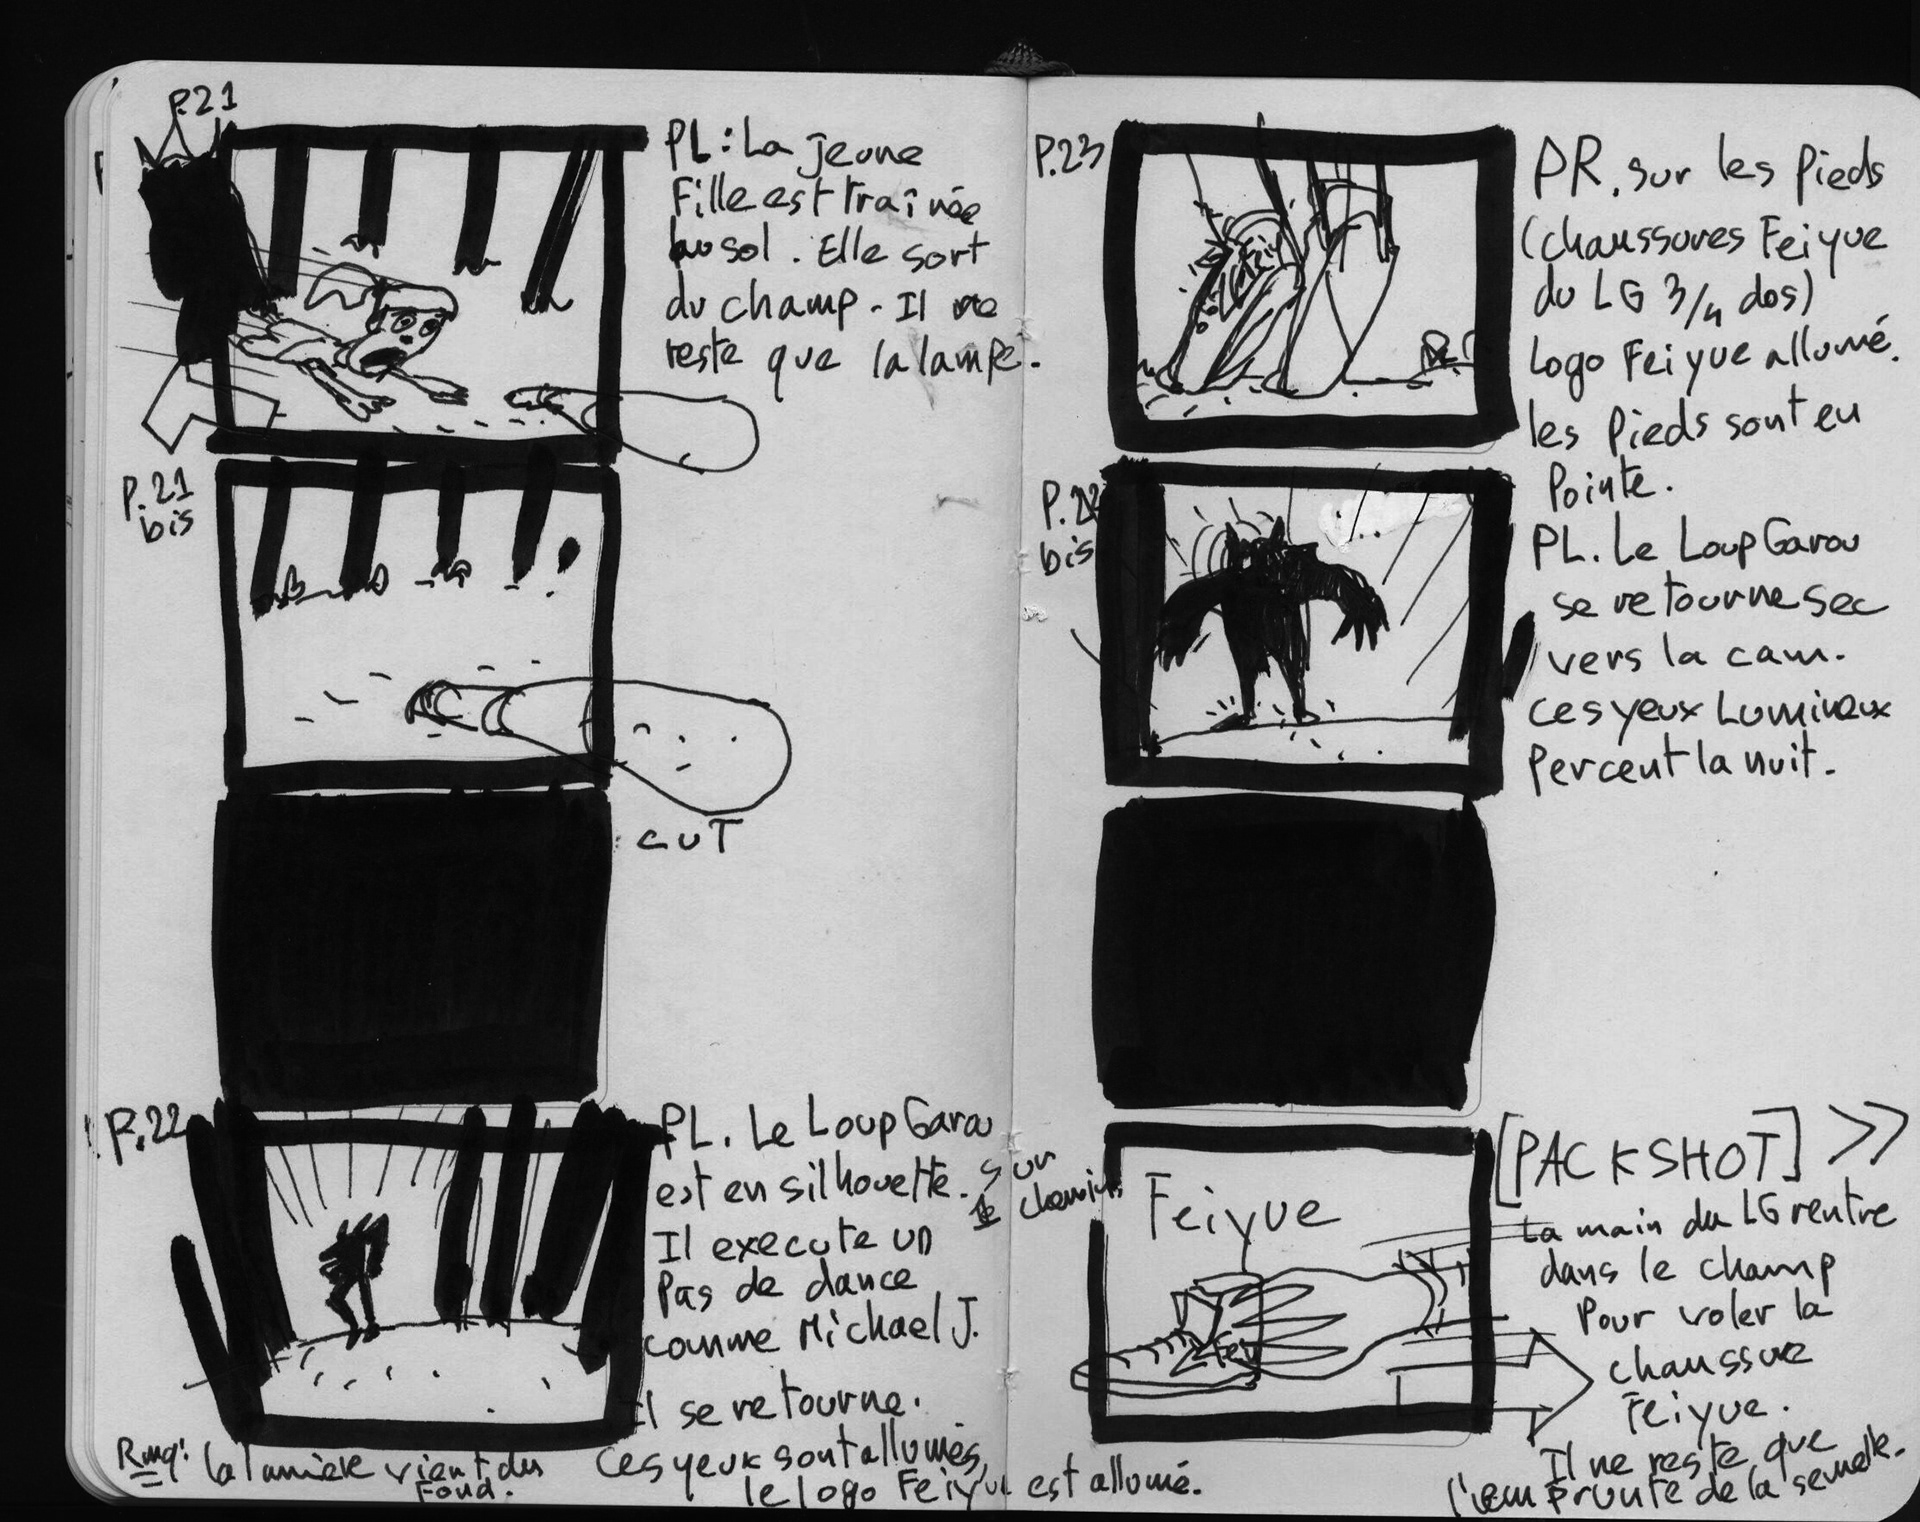 P.21
PL : La jeune
Fille est traînée
au sol. Elle sort
du champ. Il ne
reste que la lampe.
P.21
bis
CUT
P.22
PL. Le Loup Garou
est en silhouette. sur
le chemin
Il execute un
Pas de dance
comme Michael J.
Il se retourne.
Ces yeux sont allumés,
le logo Feiyue est allumé.
Rmq: la lumière vient du
Fond.
P.23
PR. sur les Pieds
(chaussures Feiyue
du LG 3/4 dos)
Logo Feiyue allumé.
les Pieds sont en
Pointe.
bis
PL. Le Loup Garou
se retourne sec
vers la cam.
ces yeux Lumineux
Percent la nuit.
[PACKSHOT] >>
Feiyue
Fey
La main du LG rentre
dans le champ
Pour voler la
chaussure
Feiyue.
Il ne reste que
l'emprunte de la semelle.